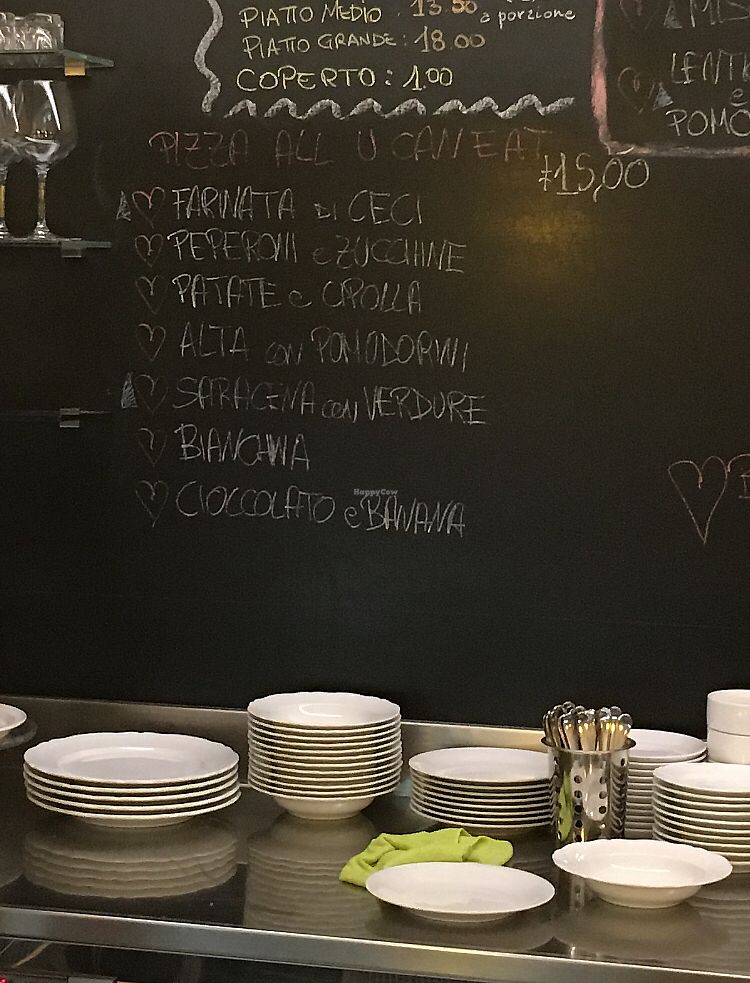 PIATTO MEDIO : 13.50
a porzione
PIATTO GRANDE : 18.00
COPERTO : 1.00
LENTI
e
POMO
PIZZA ALL U CAN EAT
15,00
FARINATA DI CECI
PEPERONI e ZUCCHINE
PATATE e CIPOLLA
ALTA con POMODORINI
SARACENA con VERDURE
BIANCHINA
CIOCCOLATO e BANANA
HappyCow